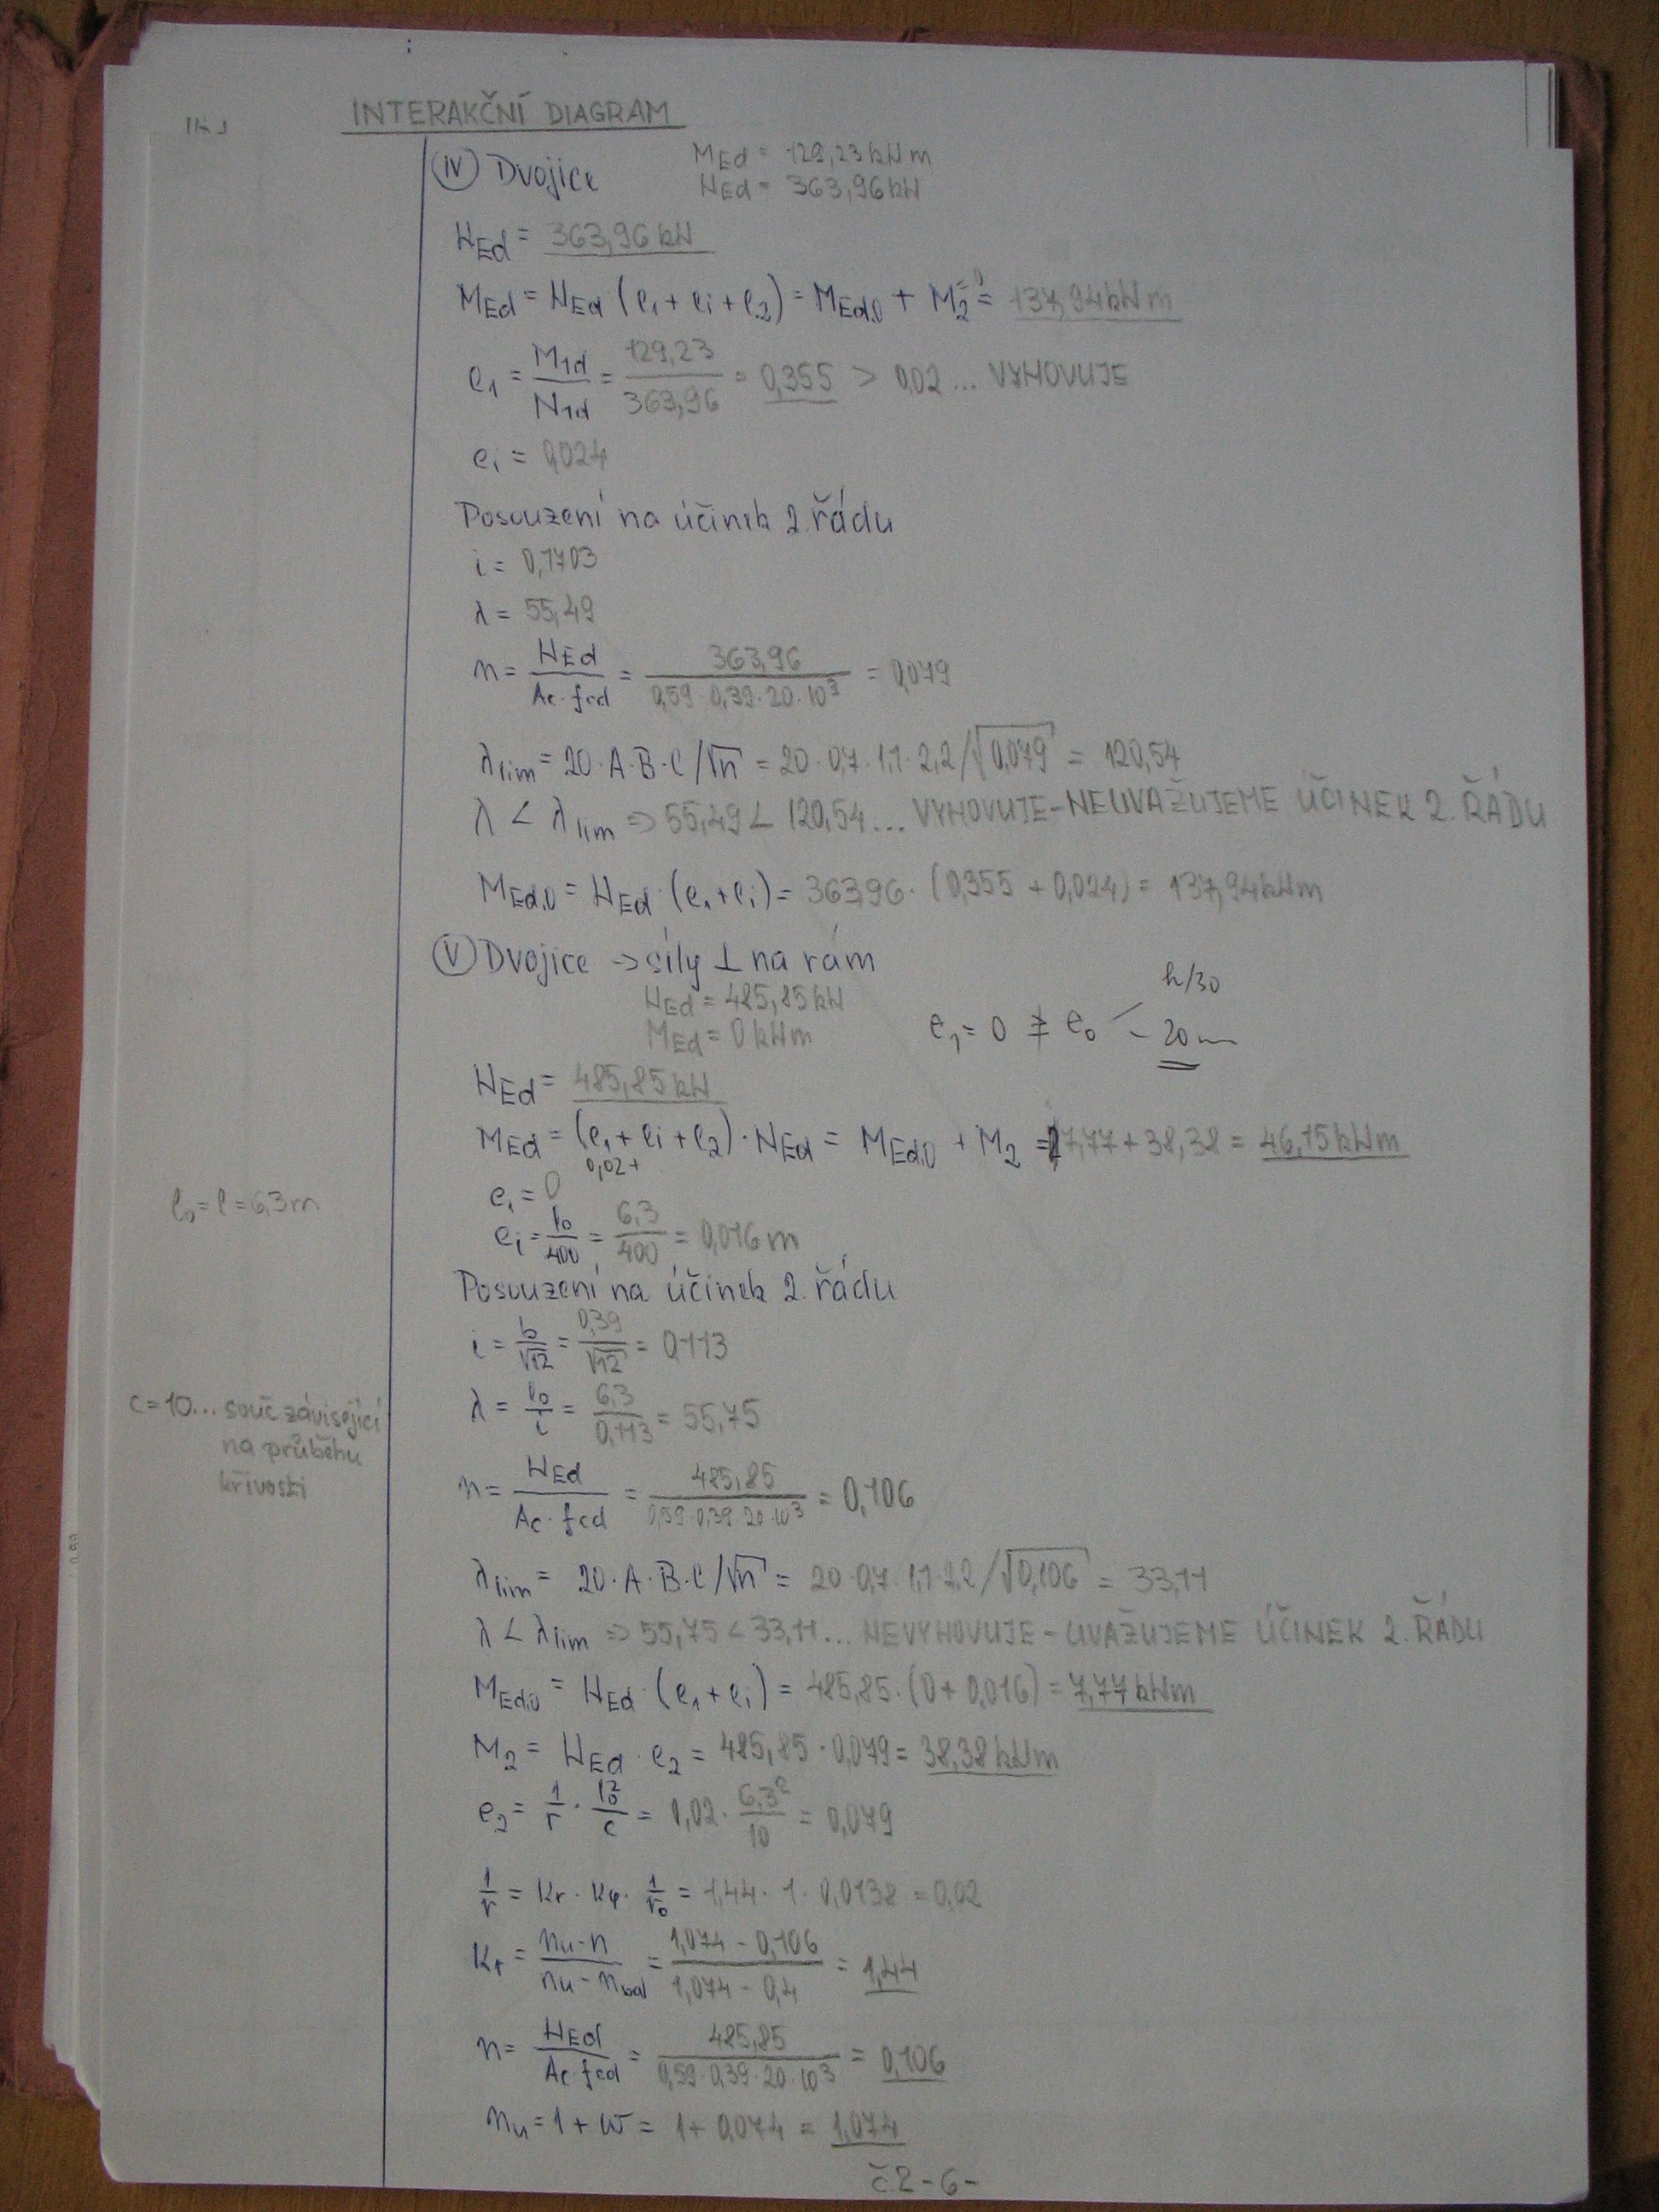 INTERAKČNÍ DIAGRAM
IV Dvojice M_Ed = 129,23 kNm
N_Ed = 363,96 kN
N_Ed = 363,96 kN
M_Ed = N_Ed (e_1 + e_i + e_2) = M_Ed,0 + M_2^{=0} = 137,94 kNm
e_1 = M_1d / N_1d = 129,23 / 363,96 = 0,355 > 0,02 ... VYHOVUJE
e_i = 0,024
Posouzení na účinek 2. řádu
i = 0,1703
λ = 55,49
n = N_Ed / A_c · f_cd = 363,96 / 0,59 · 0,39 · 20 · 10^3 = 0,079
λ_lim = 20 · A · B · C / √n = 20 · 0,7 · 1,1 · 2,2 / √0,079 = 120,54
λ < λ_lim => 55,49 < 120,54 ... VYHOVUJE - NEUVAŽUJEME ÚČINEK 2. ŘÁDU
M_Ed,0 = N_Ed · (e_1 + e_i) = 363,96 · (0,355 + 0,024) = 137,94 kNm
V Dvojice -> síly ⊥ na rám
N_Ed = 485,85 kN
M_Ed = 0 kNm
e_1 = 0 ≱ e_0 h/30
20 mm
N_Ed = 485,85 kN
M_Ed = (e_1 + e_i + e_2) · N_Ed = M_Ed,0 + M_2 = 7,77 + 38,38 = 46,15 kNm
0,02 +
e_1 = 0
l_0 = l = 6,3 m
e_i = l_0 / 400 = 6,3 / 400 = 0,016 m
Posouzení na účinek 2. řádu
i = b / √12 = 0,39 / √12 = 0,113
λ = l_0 / i = 6,3 / 0,113 = 55,75
c = 10 ... souč závisející
na průběhu
křivosti
n = N_Ed / A_c · f_cd = 485,85 / 0,59 · 0,39 · 20 · 10^3 = 0,106
λ_lim = 20 · A · B · C / √n = 20 · 0,7 · 1,1 · 2,2 / √0,106 = 33,11
λ < λ_lim => 55,75 < 33,11 ... NEVYHOVUJE - UVAŽUJEME ÚČINEK 2. ŘÁDU
M_Ed,0 = N_Ed · (e_1 + e_i) = 485,85 · (0 + 0,016) = 7,77 kNm
M_2 = N_Ed · e_2 = 485,85 · 0,079 = 38,38 kNm
e_2 = 1/r · l_0^2 / c = 0,02 · 6,3^2 / 10 = 0,079
1/r = K_r · K_φ · 1/r_0 = 1,44 · 1 · 0,0138 = 0,02
K_r = n_u - n / n_u - n_bal = 1,074 - 0,106 / 1,074 - 0,4 = 1,44
n = N_Ed / A_c · f_cd = 485,85 / 0,59 · 0,39 · 20 · 10^3 = 0,106
n_u = 1 + w = 1 + 0,074 = 1,074
č.2 - 6 -